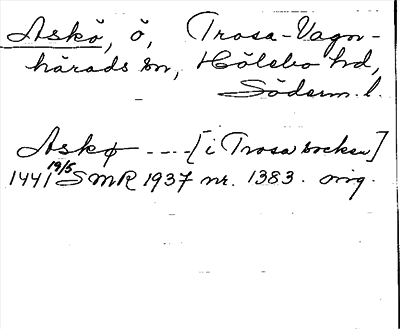 Askö, ö, Trosa-Vagn-
härads sn, Hölebo hd,
Söderm. l.
Askø ---- [i Trosa socken]
1441 19/5 SMR 1937 nr. 1383. orig.